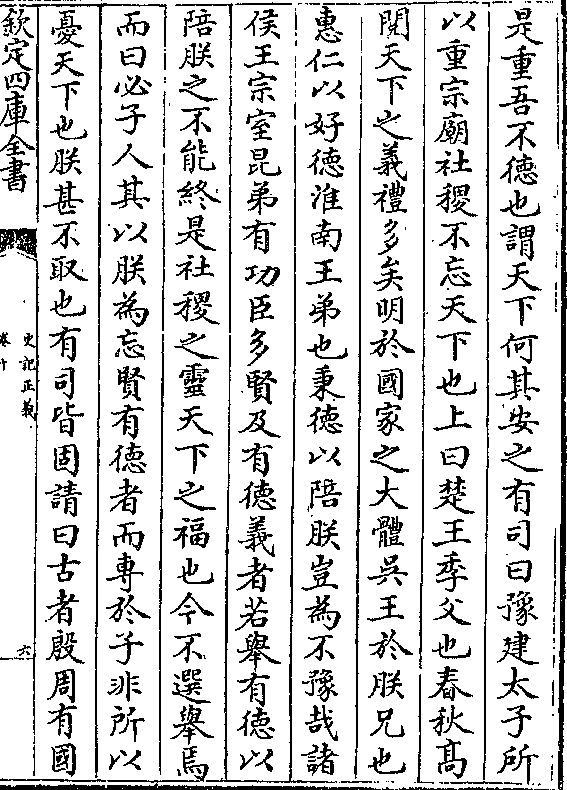 是重吾不徳也謂天下何其安之有司曰豫建太子所
以重宗廟社稷不忘天下也上曰楚王季父也春秋髙
閱天下之義禮多矣明於國家之大體吳王於朕兄也
惠仁以好徳淮南王弟也秉徳以陪朕豈為不豫哉諸
侯王宗室昆弟有功臣多賢及有徳義者若舉有徳以
陪朕之不能終是社稷之靈天下之福也今不選舉焉
而曰必子人其以朕為忘賢有徳者而專於子非所以
憂天下也朕甚不取也有司皆固請曰古者殷周有國
欽定四庫全書
史記正義
卷十
六